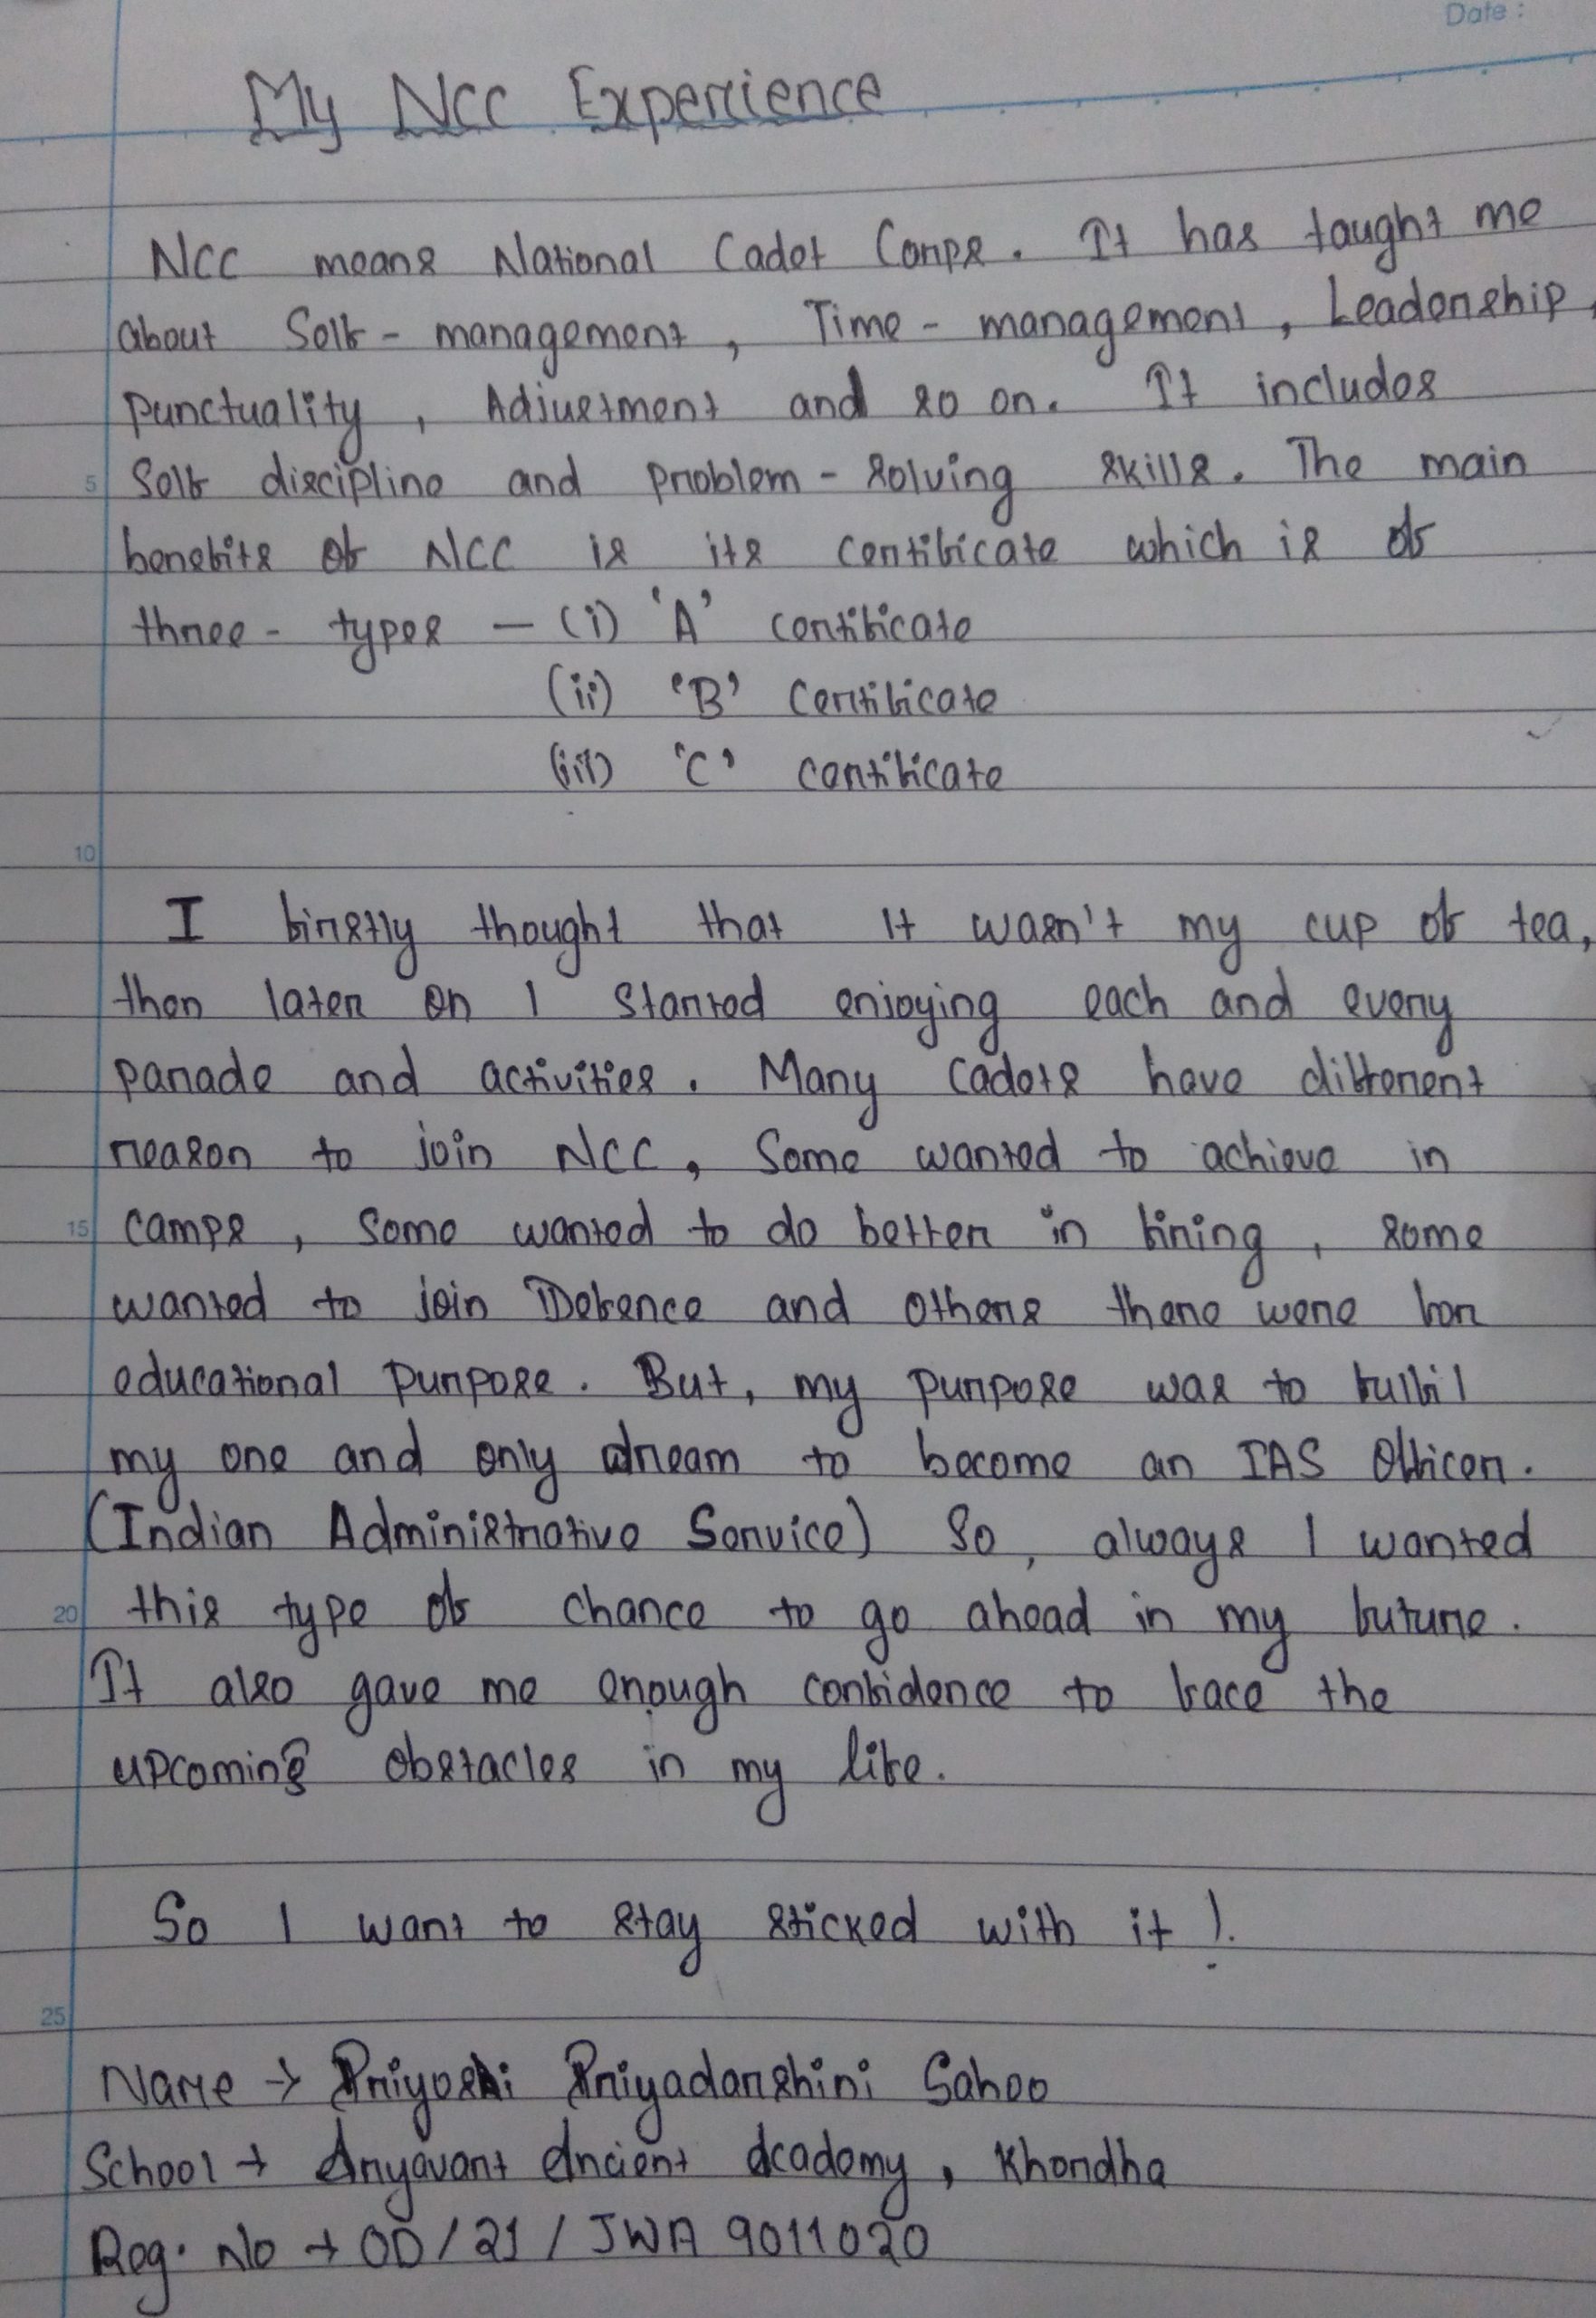 Date :
My NCC Experience
NCC means National Cadet Corps. It has taught me
about Self - management, Time - management, Leadership,
punctuality, Adjustment and so on. It includes
5 Self discipline and problem - solving skills. The main
benefits of NCC is its certificate which is of
three - types — (i) 'A' certificate
(ii) 'B' Certificate
(iii) 'C' certificate
10
I firstly thought that it wasn't my cup of tea,
then later on I started enjoying each and every
parade and activities. Many cadets have different
reason to join NCC, Some wanted to achieve in
15 camps, some wanted to do better in firing, some
wanted to join Defence and others there were for
educational purpose. But, my purpose was to fulfil
my one and only dream to become an IAS Officer.
(Indian Administrative Service) So, always I wanted
20 this type of chance to go ahead in my future.
It also gave me enough confidence to face the
upcoming obstacles in my life.
So I want to stay sticked with it !
25
Name → Priyoshi Priyadarshini Sahoo
School → Aryavart Ancient Academy, Khordha
Reg. No → OD/21/JWA 9011020